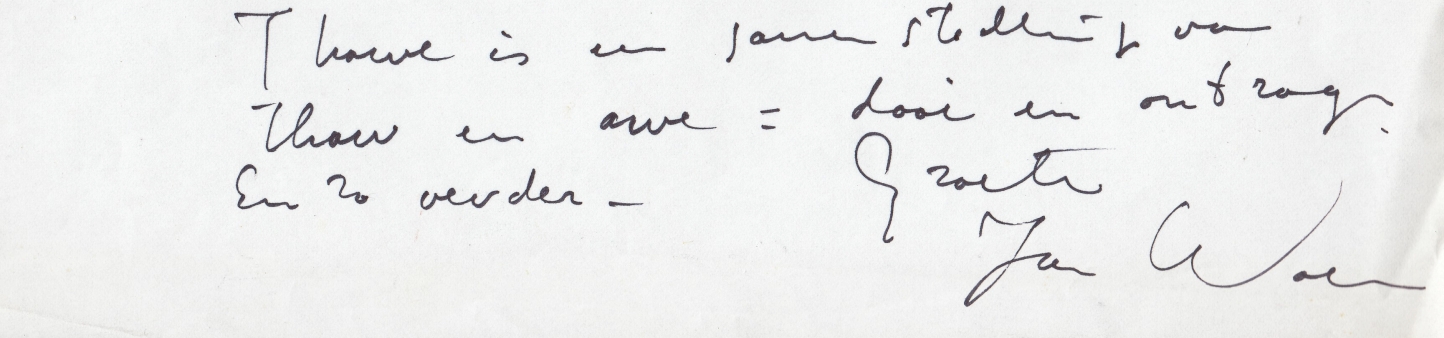 Thawe is een samenstelling van
Thaw en awe = dooi en ontzag.
En zo verder – Groeten
Jan